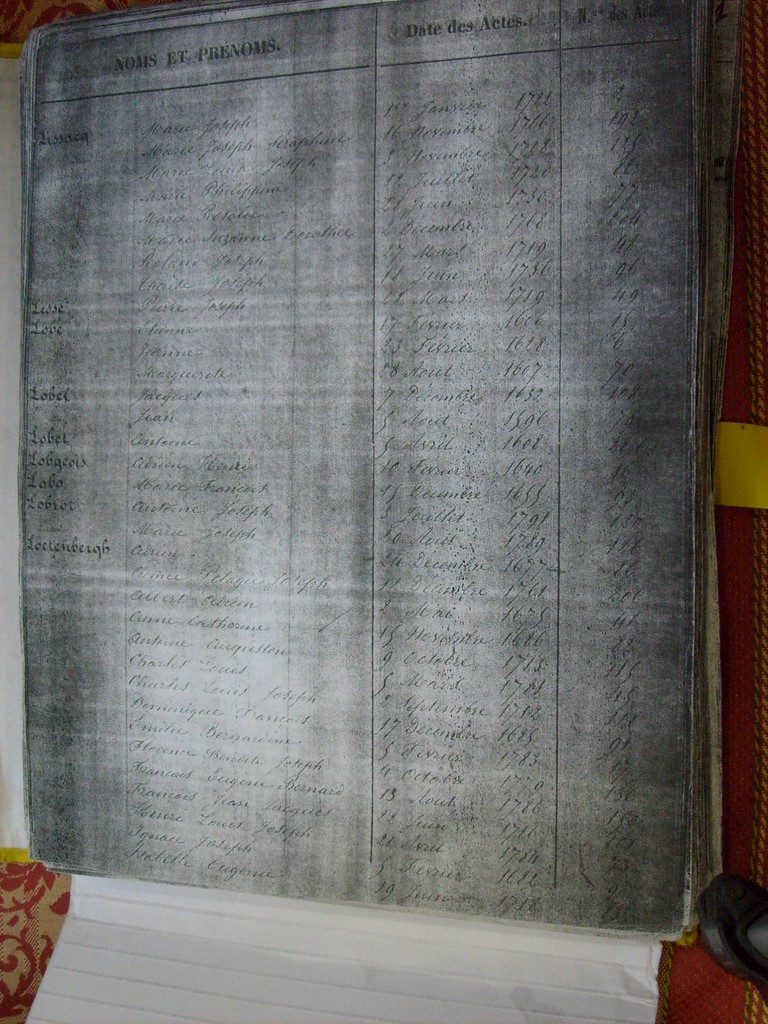 NOMS ET PRÉNOMS. Date des Actes. N.os des Actes
Lissacq Marie Joseph 17 Janvier 1722 2
Marie Joseph Séraphine 16 Novembre 1766 192
Marie Louise Joseph 3 Novembre 1722 125
Marie Philippine 12 Juillet 1720
Marie Rosalie 28 Juin 1730 77
Marie Suzanne Dorothée 2 Decembre 1768 204
Roland Joseph 27 Mars 1719 48
Louise Joseph 11 Juin 1736 96
Lisse Pierre Joseph 28 Mars 1719 49
Lobé Etienne 17 Fevrier 1606 15
Jeanne 23 Fevrier 1628 6
Marguerite 28 Aout 1607 70
Lobel Jacques 7 Decembre 1632 108
Jean 5 Aout 1596
Lobet Antoine 5 Avril 1608
Lobgeois Adrien Henri 10 Fevrier 1640
Lobo Marie François 15 Decembre 1655
Lobrot Antoine Joseph 3 Juillet 1791 120
Marie Joseph 20 Aout 1769 148
Loetenbergh Adrien 24 Decembre 1677
Aimée Pélagie Joseph 12 Decembre 1761 206
Albert Adrien 2 Mai 1675
Anne Catherine 15 Novembre 1686
Antoine Augustin 9 Octobre 1718 115
Charles Louis 5 Mars 1781
Charles Louis Joseph Septembre 1712
Dominique François 17 Decembre 1685 91
Emilie Bernardine 5 Fevrier 1783
Florence Benoite Joseph 4 Octobre 1779
François Eugène Bernard 13 Aout 1786
François Jean Jacques 12 Juin 1716
Henri Louis Joseph 21 Avril 1784
Ignace Joseph 5 Fevrier 1682 9
Isabelle Eugénie 19 Juin 1718